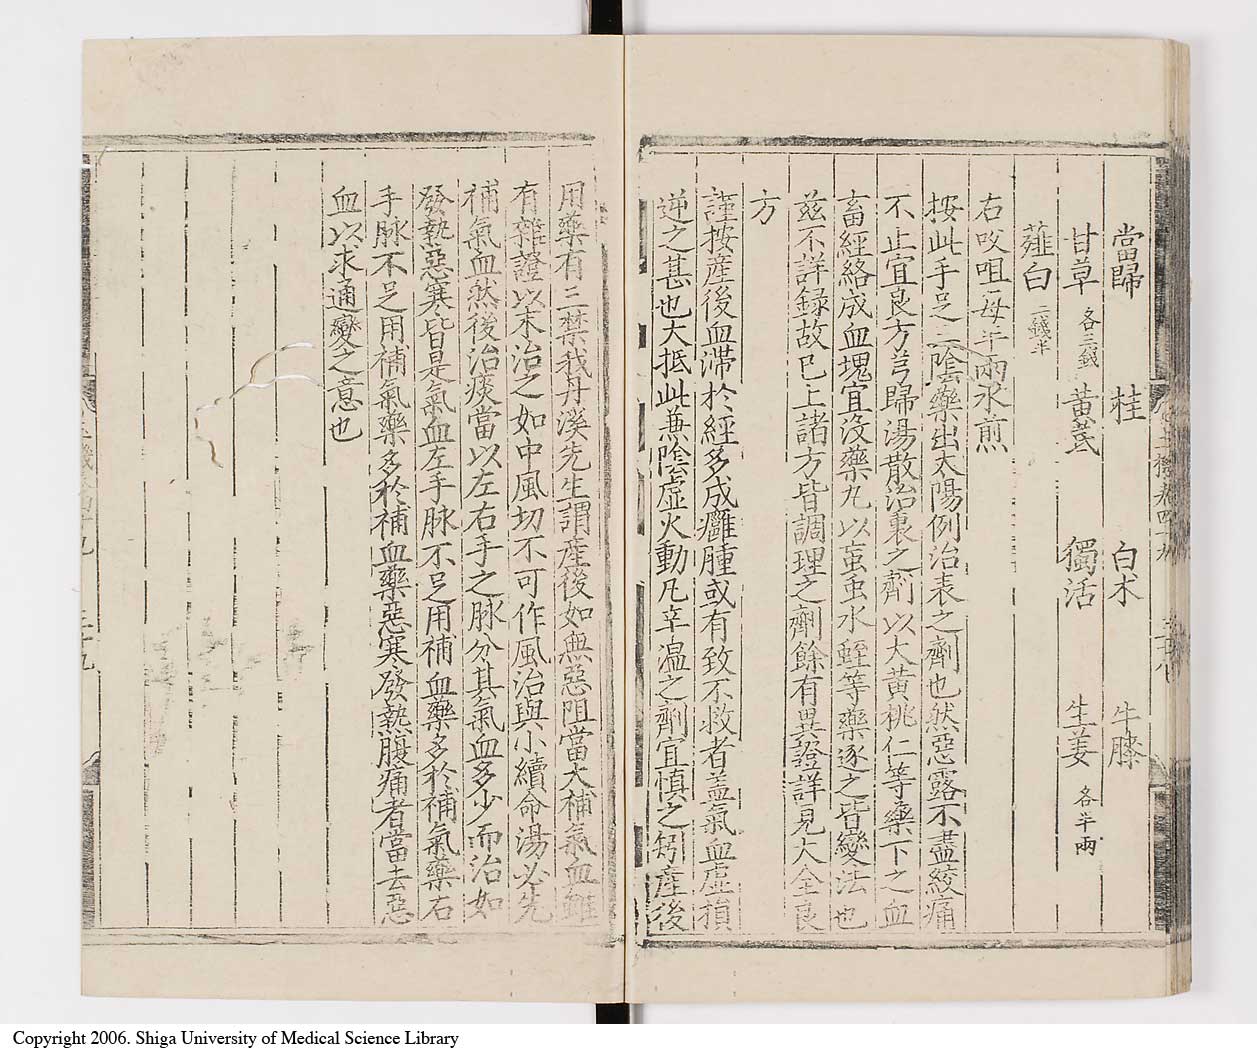 當歸 桂 白朮 牛膝
甘草各三錢 黃芪 獨活 生姜各半兩
薤白二錢半
右㕮咀每半兩水煎
按此手足三陰藥出太陽例治表之劑也然惡露不盡絞痛
不止宜良方芎歸湯散治裏之劑以大黃桃仁等藥下之血
畜經絡成血塊宜沒藥丸以䖟虫水蛭等藥逐之皆變法也
玆不詳録故已上諸方皆調理之劑餘有異證詳見大全良
方
謹按産後血滯於經多成癰腫或有致不救者盖氣血虛損
逆之甚也大抵此兼陰虛火動凡辛温之劑宜慎之矧産後
用藥有三禁我丹溪先生謂産後如無惡阻當大補氣血雖
有雜證以末治之如中風切不可作風治與小續命湯必先
補氣血然後治痰當以左右手之脉分其氣血多少而治如
發熱惡寒皆是氣血左手脉不足用補血藥多於補氣藥右
手脉不足用補氣藥多於補血藥惡寒發熱腹痛者當去惡
血以求通變之意也
Copyright 2006. Shiga University of Medical Science Library